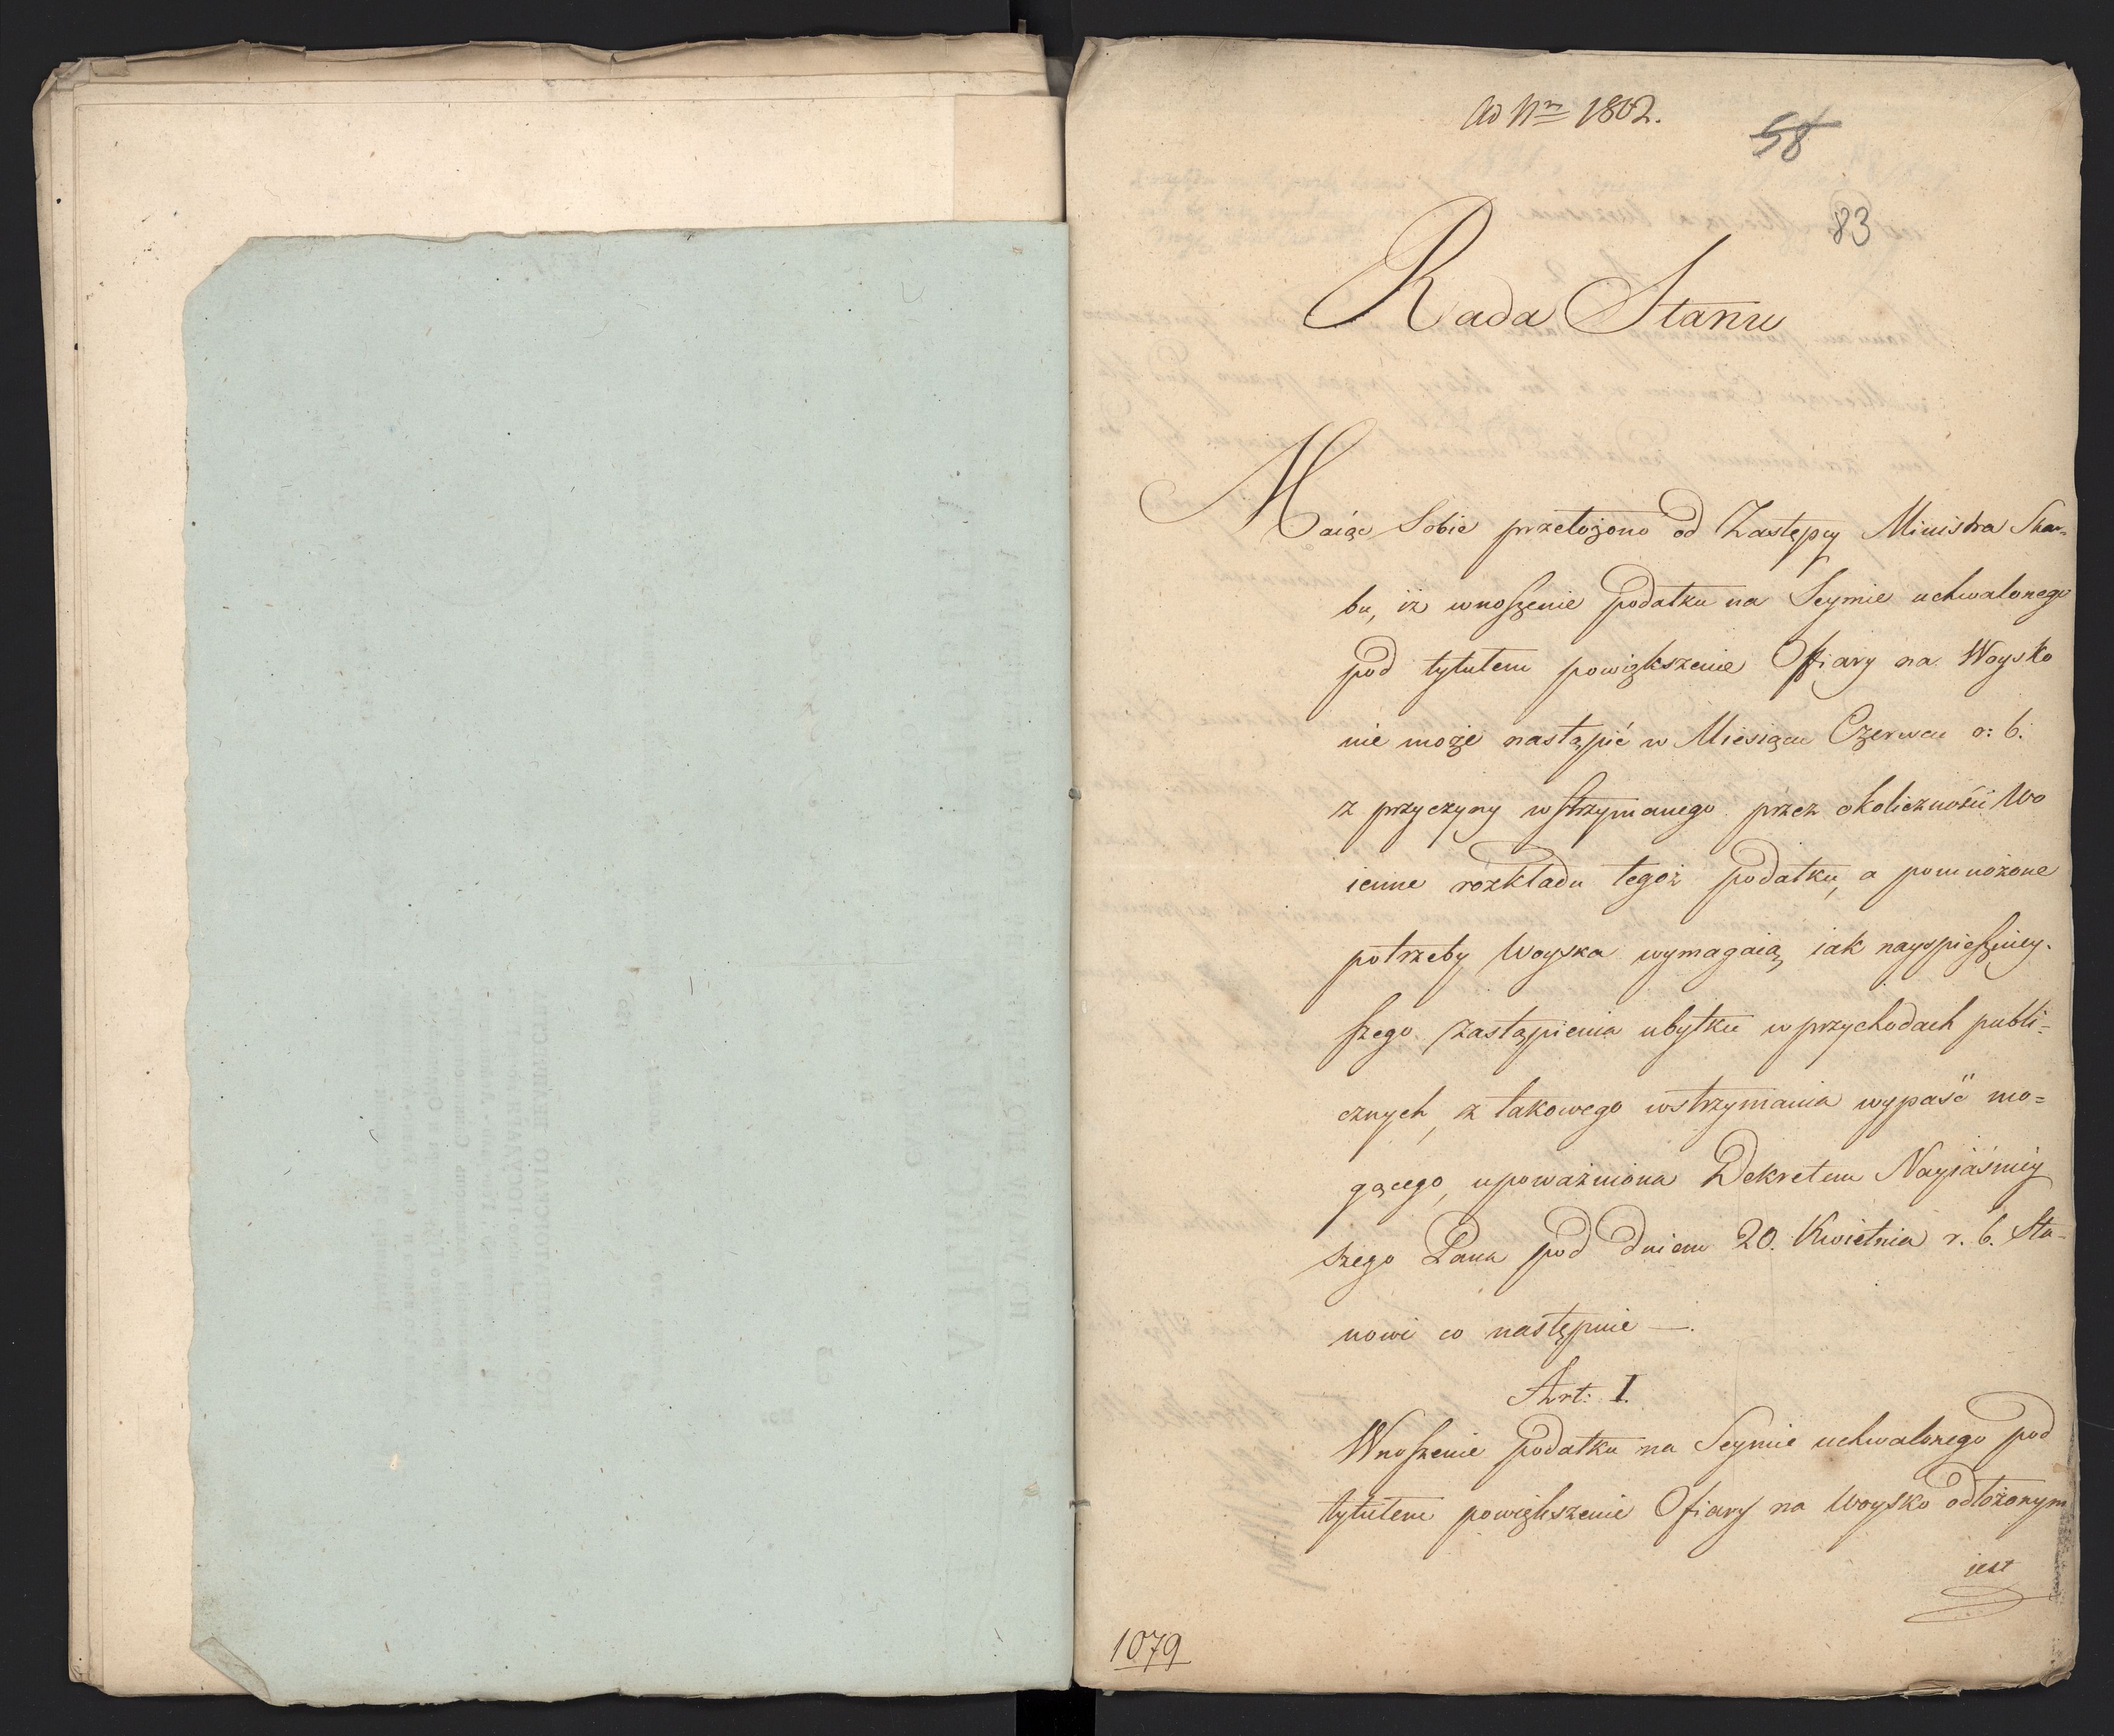 Ad Nrm 1802.
58
83
Rada Stanu
Maiąc Sobie przełożono od Zastępcy Ministra Skar-
bu, iż wnoszenie podatku na Seymie uchwalonego
pod tytułem powiększenie Offiary na Woysko
nie może nastąpić w Miesiącu Czerwcu r: b:
z przyczyny wstrzymanego przez okoliczności Wo
ienne rozkładu tegoż podatku, a pomnożone
potrzeby Woyska wymagaią iak nayspieszniey-
szego zastąpienia ubytku w przychodach publi-
cznych, z takowego wstrzymania wypaść mo-
gącego, upoważniona Dekretem Nayiaśniey
szego Pana pod dniem 20. Kwietnia r. b. Sta-
nowi co następnie —.
Art: I.
Wnoszenie podatku na Seymie uchwalonego pod
tytułem powiększenie Ofiary na Woysko odłożonym
iest
1079